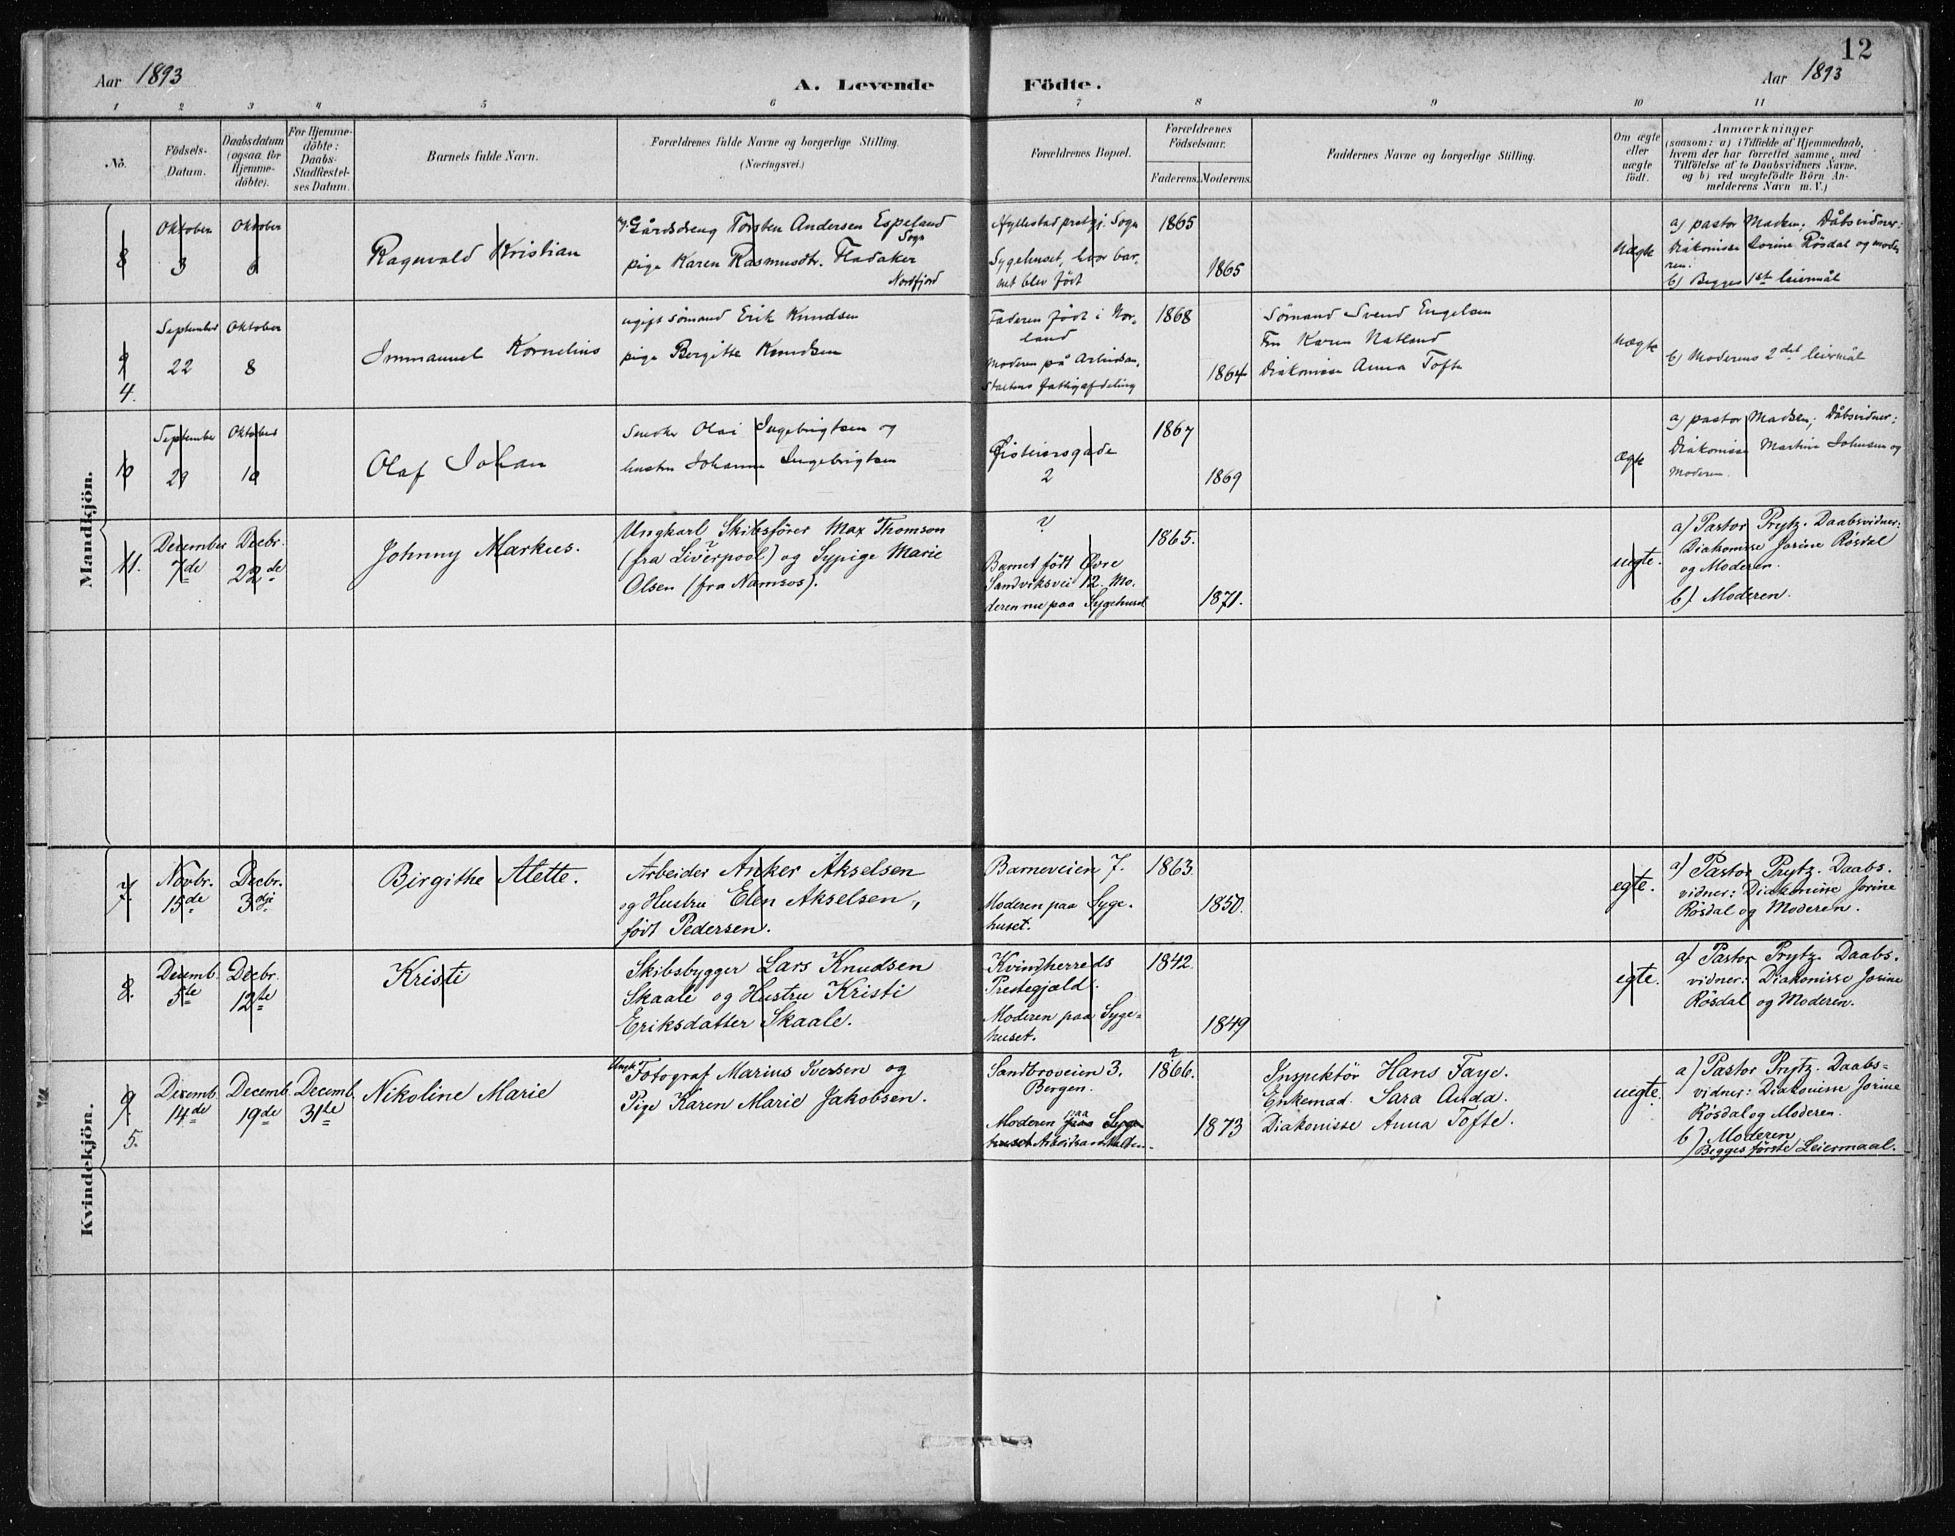 12
Aar 1893
A. Levende
Födte.
Aar 1893
1 2 3 4 5 6 7 8 9 10 11
No.
Födsels-
Datum.
Daabsdatum
(ogsaa for
Hjemme-
döbte).
For Hjemme-
döbte:
Daabs-
Stadfæstel-
ses Datum.
Barnets fulde Navn.
Forældrenes fulde Navne og borgerlige Stilling.
(Næringsvei.)
Forældrenes Bopæl.
Forældrenes
Födselsaar.
Faderens.
Moderens.
Faddernes Navne og borgerlige Stilling.
Om ægte
eller
uægte
födt.
Anmærkninger
(saasom: a) i Tilfælde af Hjemmedaab,
hvem der har forrettet samme, med
Tilföielse af to Daabsvidners Navne,
og b) ved uægtefödte Börn An-
melderens Navn m. V.)
Mandkjön.
8
Oktober
3
Oktober
6
Ragnvald Kristian
Gårdsdreng Torsten Andersen Espeland
Sogn
pige Karen Rasmusdtr. Fladaker
Nordfjord
Hyllestad prstgj. Sogn
Sygehuset, hvor bar-
net blev født
1865
1865
uægte
a) pastor Madsen; Dåbsvidner:
Diakonisse Jorine Røsdal og mode-
ren.
b) Begges 1st leiermål
9
4.
September
22
Oktober
8
Immanuel Kornelius
ugift sömand Erik Knudsen
pige Bergitte Knudsen
Faderen født i Nor-
land
Moderen på Arbeidsan-
staltens fattigafdeling
1868
1864
Sømand Svend Engelsen
Fru Karen Natland
Diakonisse Anna Tofte
uægte
b) Moderens 2det leiermål
10
September
29
Oktober
10
Olaf Johan
Snedker Olai Ingebrigtsen og
hustru Johanne Ingebrigtsen
Øisteinsgade
2
1867
1869
ægte
a) pastor Madsen; Dåbsvidner;
Diakonisse Martine Johnsen og
Moderen.
11.
December
7de
Decbr.
22de
Johnny Markus.
Ungkarl Skibsfører Max Thomson
(fra Liverpool?) og Sypige Marie
Olsen (fra Namsos).
?
Barnet født Øvre
Sandviksvei 12. Mo-
deren nu paa Sygehuset
1865.
1871.
uegte.
a) Pastor Prytz. Daabsvidner:
Diakonisse Jorine Røsdal
og Moderen.
b) Moderen.
Kvindekjön.
7.
Novbr.
15de
Decbr.
3dje
Birgithe Alette.
Arbeider Anker Akselsen
og Hustru Elen Akselsen,
født Pedersen.
Barneveien 7.
Moderen paa Syge-
huset.
1863.
1850.
egte.
a) Pastor Prytz. Daabs-
vidner: Diakonisse Jorine
Røsdal og Moderen.
8.
Decemb.
5te
Decbr.
12te
Kristi
Skibsbygger Lars Knudsen
Skaale og Hustru Kristi
Eriksdatter Skaale.
Kvindherreds
Prestegjæld.
Moderen paa Syge-
huset.
1842.
1849
egte.
a) Pastor Prytz. Daabs-
vidner: Diakonisse Jorine
Røsdal og Moderen.
9
5.
Decemb.
14de
Decemb.
19de
Decemb.
31te
Nikoline Marie
Ungk. Fotograf Marius Iversen og
Pige Karen Marie Jakobsen.
Sandbroveien 3.
Bergen.
Moderen paa Syge-
huset Arbeidsanstalten.
?
1866.
1873
Inspektör Hans Faye.
Enkemad. Sara Anda.
Diakonisse Anna Tofte.
uegte.
a) Pastor Prytz. Daabs-
vidner: Diakonisse Jorine
Røsdal og Moderen.
b) Moderen
Begges første Leiermaal.